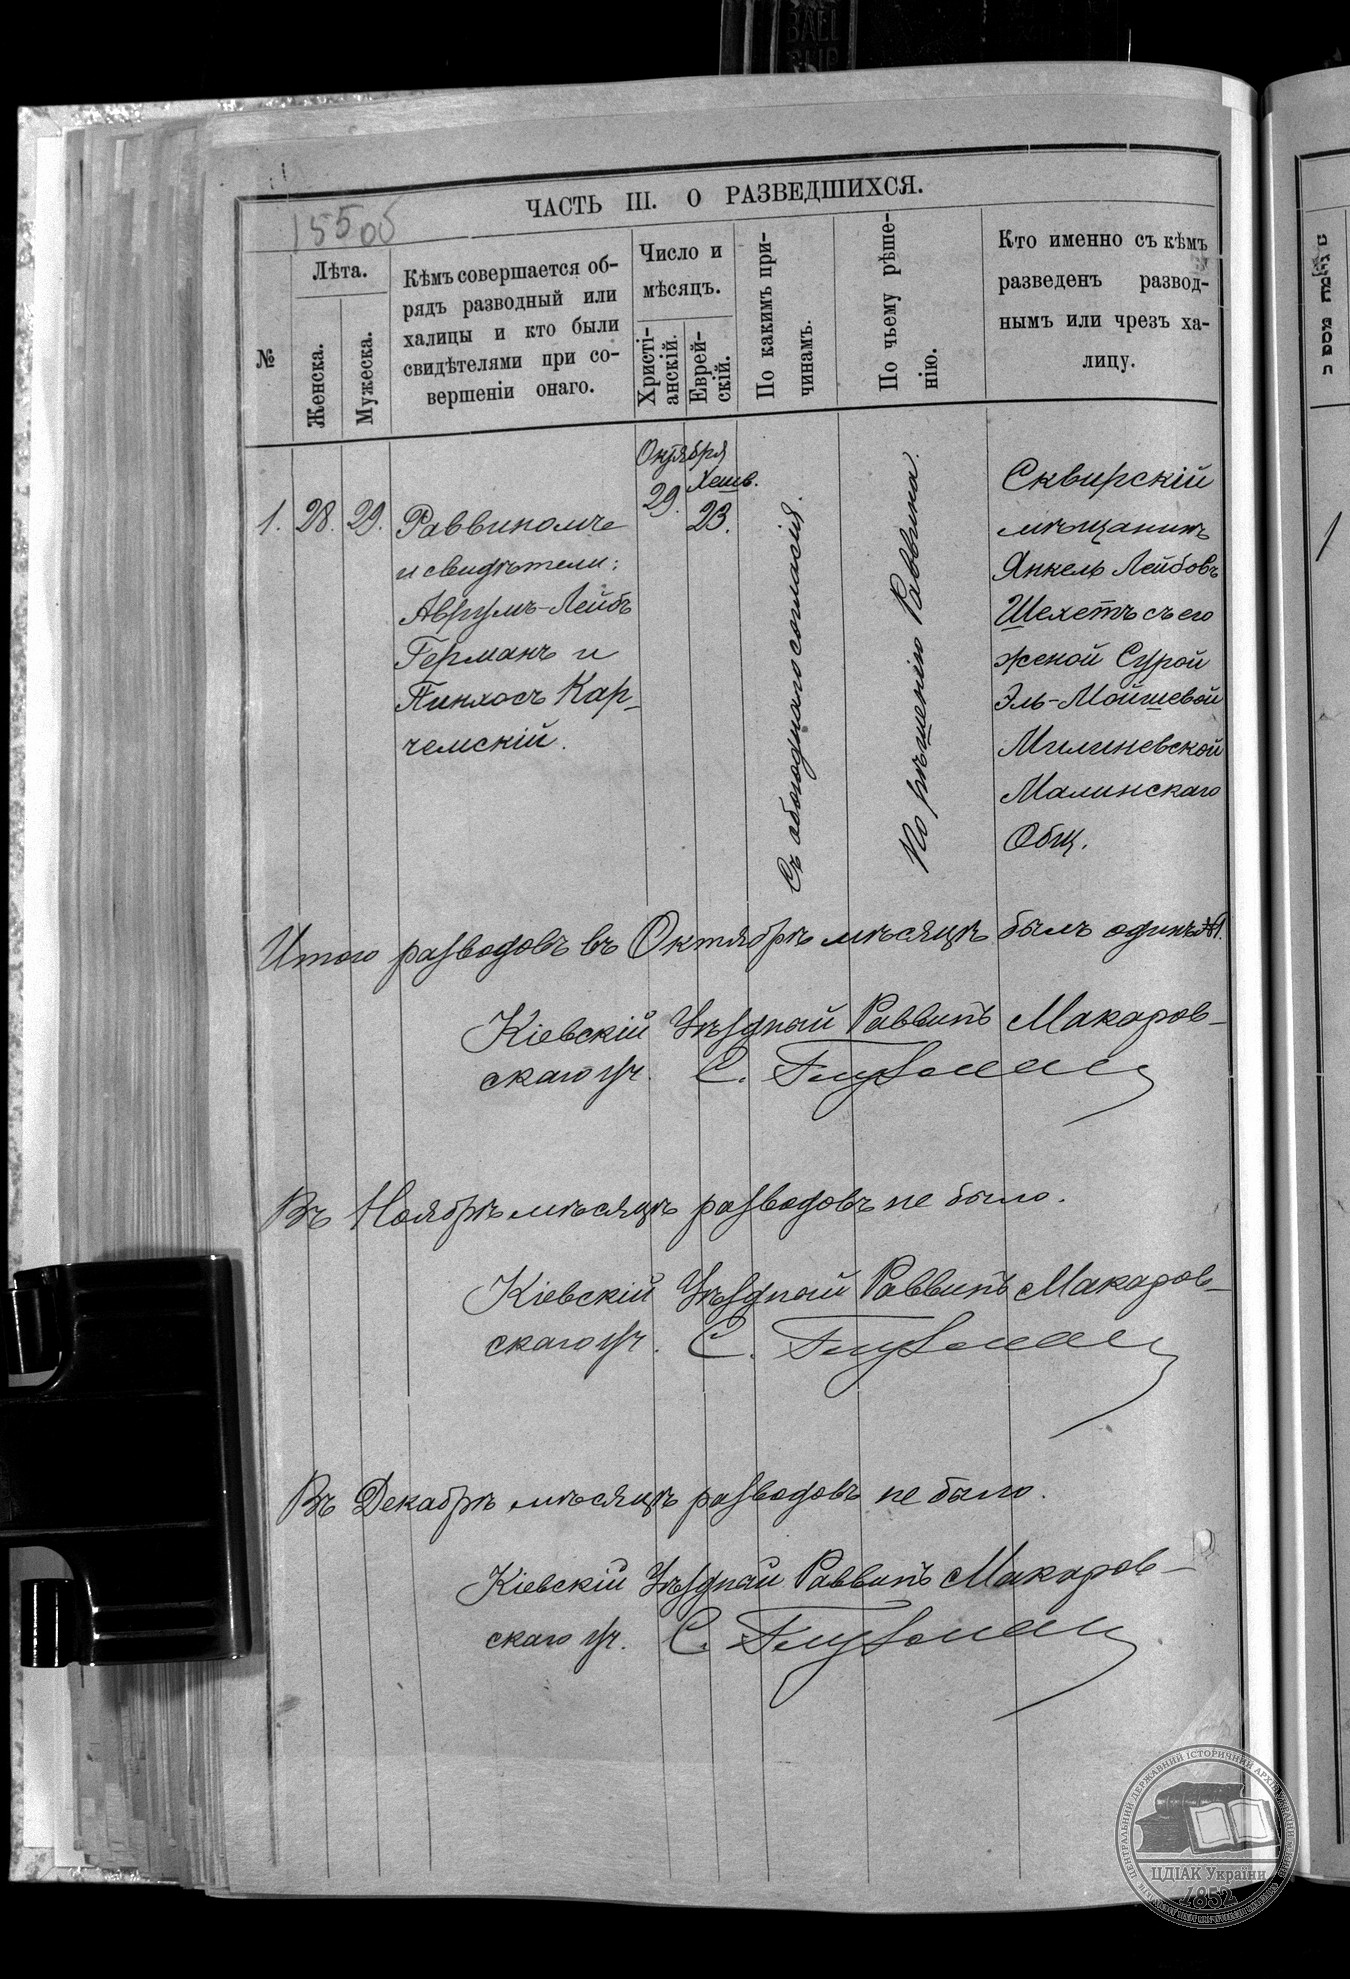 155 об
ЧАСТЬ III. О РАЗВЕДШИХСЯ.
№
Лѣта.
Женска.
Мужеска.
Кѣмъ совершается об-
рядъ разводный или
халицы и кто были
свидѣтелями при со-
вершеніи онаго.
Число и
мѣсяцъ.
Христі-
анскій.
Еврей-
скій.
По какимъ при-
чинамъ.
По чьему рѣше-
нію.
Кто именно съ кѣмъ
разведенъ развод-
нымъ или чрезъ ха-
лицу.
1.
28.
29.
Раввиномъ
и свидѣтели:
Аврумъ-Лейбъ
Германъ и
Пинхосъ Кар-
чемскій.
Октября
29.
Хешв.
23.
Съ обоюднаго согласія.
По рѣшенію Раввина.
Сквирскій
мѣщанинъ
Янкель Лейбовъ
Шехетъ съ его
женой Сурой
Эль-Мойшевой
Милиневской
Малинскаго
Общ.
Итого разводовъ въ Октябрѣ мѣсяцѣ былъ одинъ №1.
Кіевскій Уѣздный Раввинъ Макаров-
скаго уч. С. Глузман
Въ Ноябрѣ мѣсяцѣ разводовъ не было.
Кіевскій Уѣздный Раввинъ Макаров-
скаго уч. С. Глузман
Въ Декабрѣ мѣсяцѣ разводовъ не было.
Кіевскій Уѣздный Раввинъ Макаров-
скаго уч. С. Глузман
ЦЕНТРАЛЬНИЙ ДЕРЖАВНИЙ ІСТОРИЧНИЙ АРХІВ УКРАЇНИ
ЦДІАК України
1852